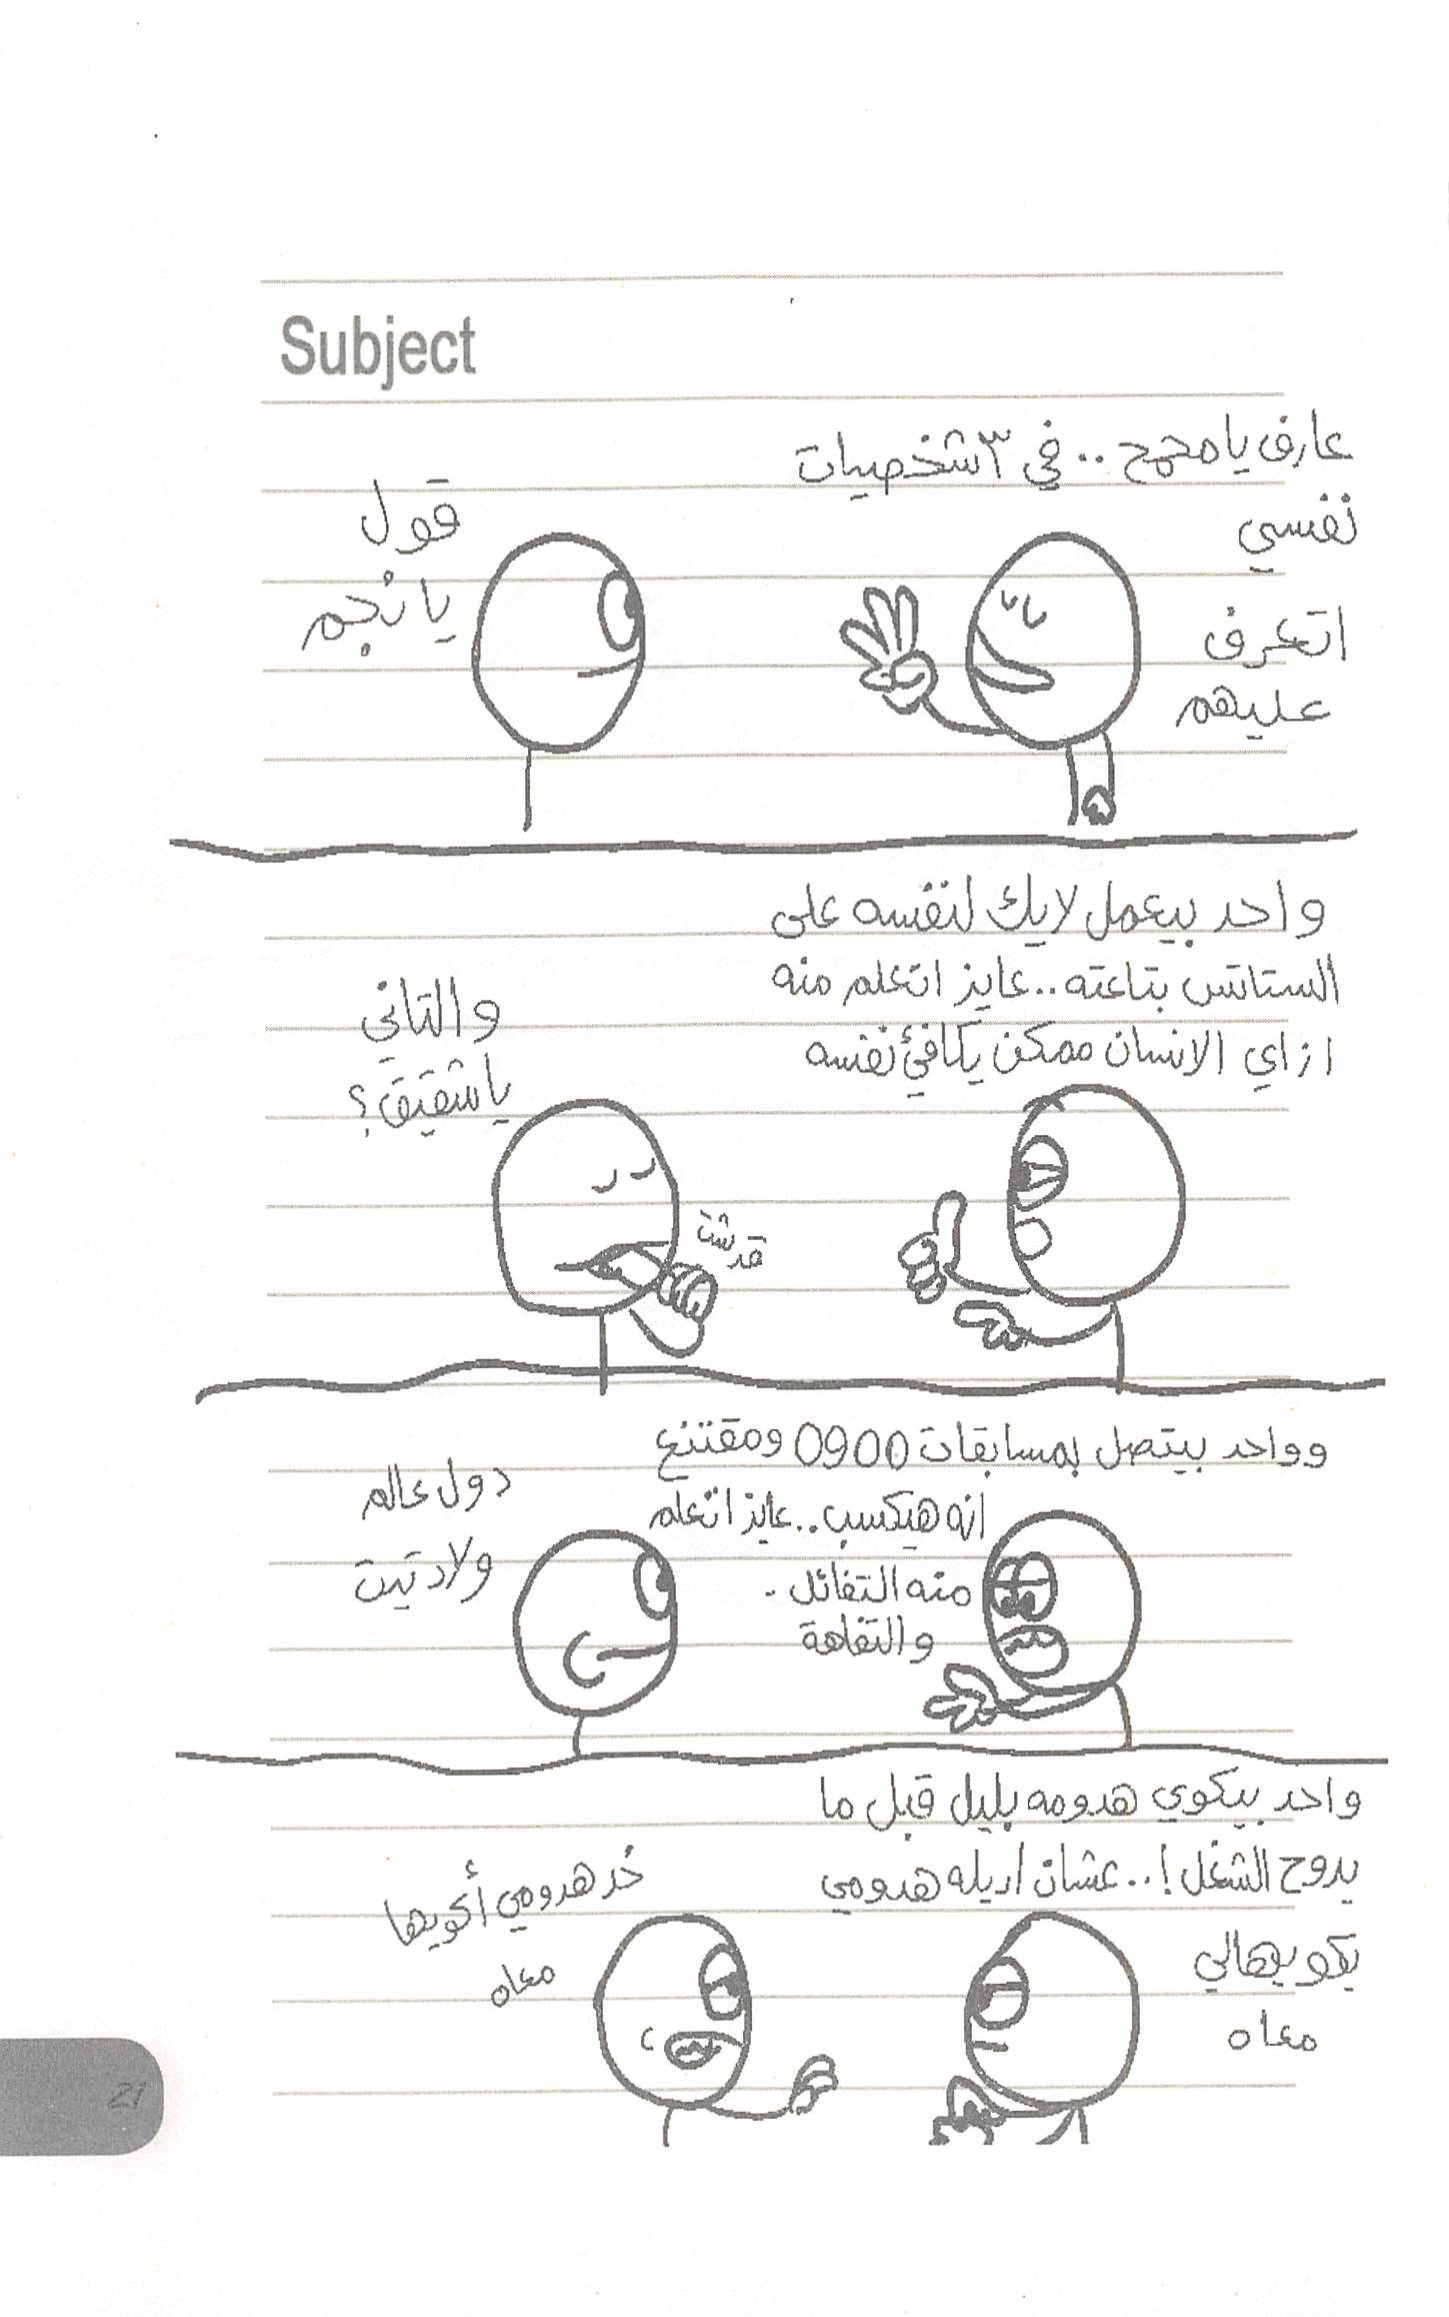 Subject
عارف يا محمح .. في ٣ شخصيات
نفسي
اتعرف
عليهم
قول
يا نجم
واحد بيعمل لايك لنفسه على
الستاتس بتاعته .. عايز اتعلم منه
ازاي الانسان ممكن يكافئ نفسه
والتاني
يا شقيق ؟
قرشت
وواحد بيتصل بمسابقات 0900 ومقتنع
انه هيكسب .. عايز اتعلم
منه التفائل
والتفاهة
دول عالم
ولاد تيت
واحد بيكوي هدومه بليل قبل ما
يروح الشغل ! .. عشان اديله هدومي
يكويهالي
معاه
خد هدومي أكويها
معاه
21